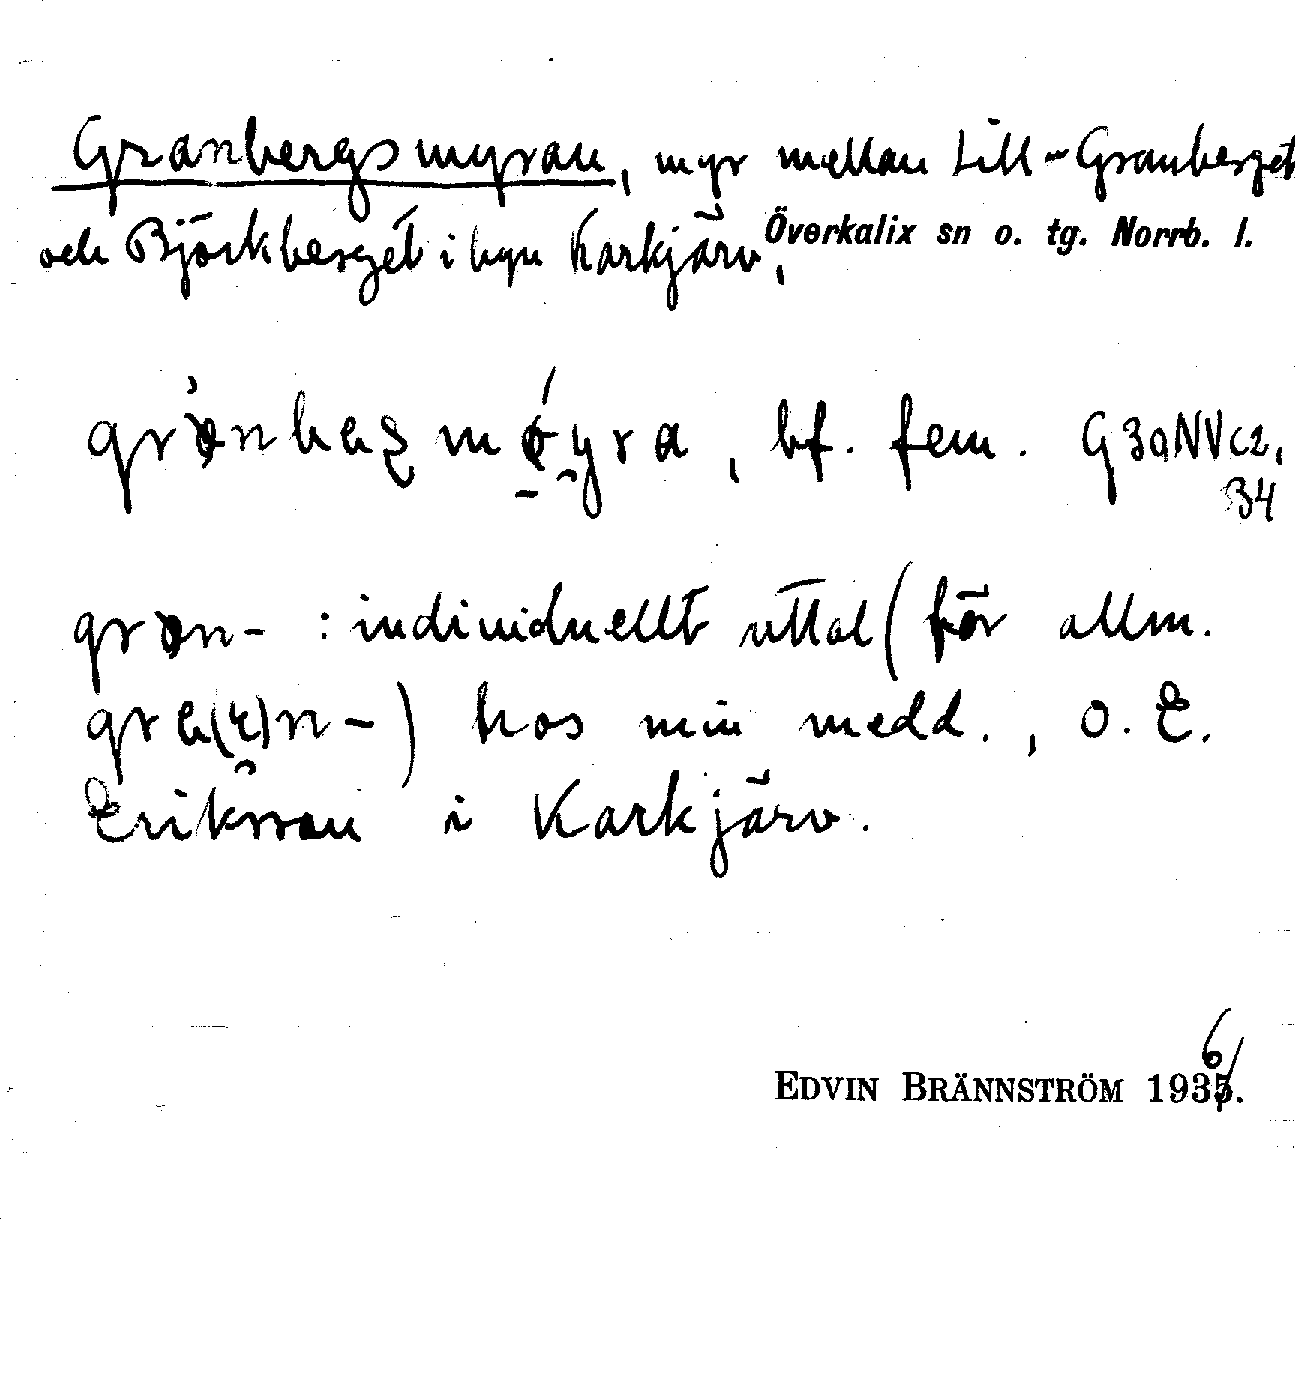 Granbergsmyran, myr mellan Lill-Granberget
och Björkberget i byn Karkjärv, Överkalix sn o. tg. Norrb. l.
bf. fem. G3aNVc2,
34
: individuellt uttal (för allm.
hos min medd., O. E.
Eriksson i Karkjärv.
EDVIN BRÄNNSTRÖM 1936.